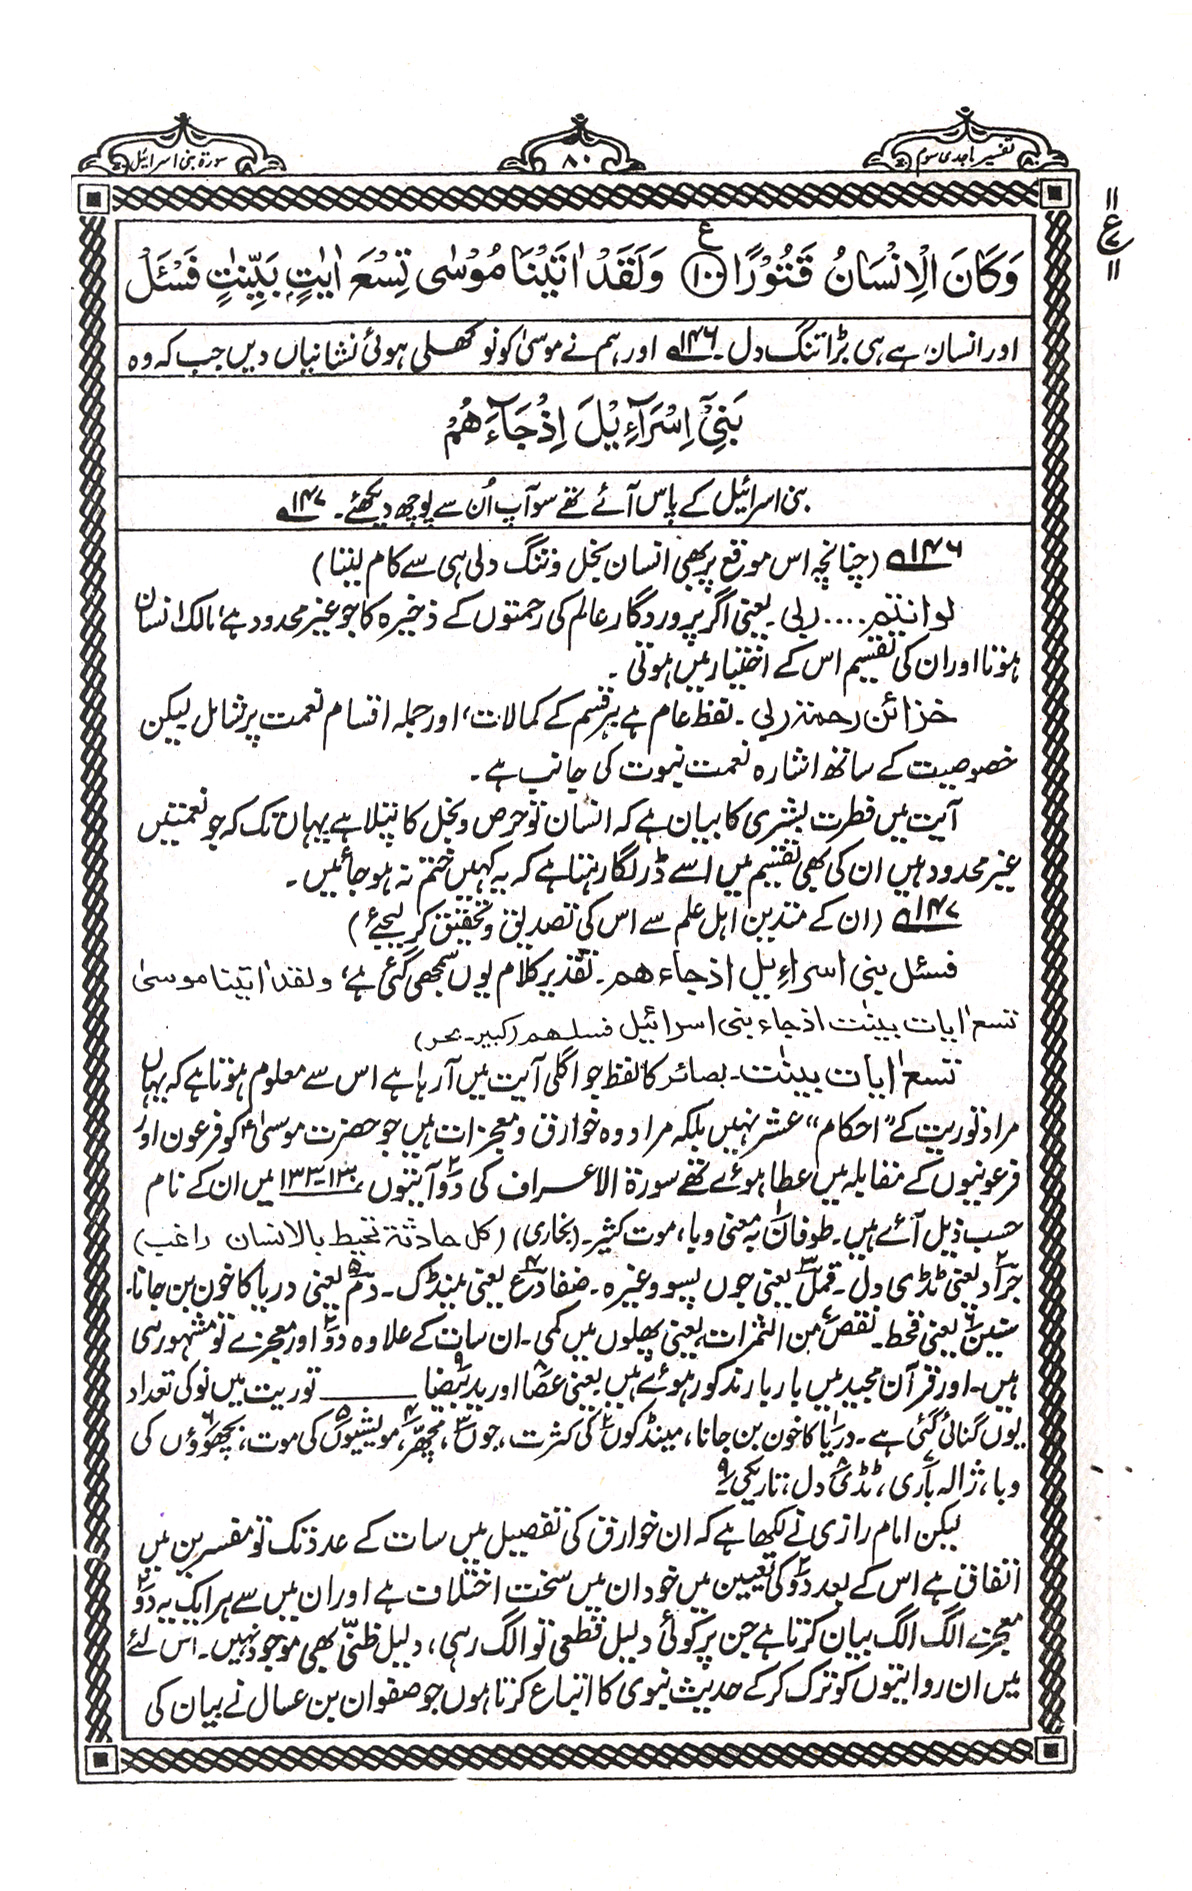 تفسیر ماجدی سوم
۸۰
سورۃ بنی اسرائیل
وَكَانَ الْاِنْسَانُ قَتُوْرًا ۱۰۰ ع وَلَقَدْ اٰتَيْنَا مُوْسٰى تِسْعَ اٰيٰتٍ بَيِّنٰتٍ فَسْـَٔلْ
اور انسان ہے ہی بڑا تنگ دل۔ ۱۴۶ اور ہم نے موسیٰ کو نو کھلی ہوئی نشانیاں دیں جب کہ وہ
بَنِيْٓ اِسْرَآءِيْلَ اِذْ جَآءَهُمْ
بنی اسرائیل کے پاس آئے تھے سو آپ اُن سے پوچھ دیکھئے۔ ۱۴۷
۱۴۶ (چنانچہ اس موقع پر بھی انسان بخل و تنگ دلی ہی سے کام لیتا)
لو انتم .... ربی۔ یعنی اگر پروردگار عالم کی رحمتوں کے ذخیرہ کا جو غیر محدود ہے، مالک انسان
ہوتا اور ان کی تقسیم اس کے اختیار میں ہوتی۔
خزائن رحمۃ ربی۔ لفظ عام ہے ہر قسم کے کمالات، اور جملہ اقسام نعمت پر شامل لیکن
خصوصیت کے ساتھ اشارہ نعمت نبوت کی جانب ہے۔
آیت میں فطرت بشری کا بیان ہے کہ انسان تو حرص و بخل کا پتلا ہے یہاں تک کہ جو نعمتیں
غیر محدود ہیں ان کی بھی تقسیم میں اسے ڈر لگا رہتا ہے کہ یہ کہیں ختم نہ ہو جائیں۔
۱۴۷ (ان کے متدین اہل علم سے اس کی تصدیق و تحقیق کر لیجئے)
فسئل بنی اسراءیل اذ جاءھم۔ تقدیر کلام یوں سمجھی گئی ہے، ولقد اٰتینا موسیٰ
تسع اٰیات بینٰت اذ جاء بنی اسرائیل فسلھم (کبیر۔ بحر)
تسع اٰیات بینٰت۔ بصائر کا لفظ جو اگلی آیت میں آ رہا ہے اس سے معلوم ہوتا ہے کہ یہاں
مراد توریت کے "احکام" عشر نہیں بلکہ مراد وہ خوارق و معجزات ہیں جو حضرت موسیٰؑ کو فرعون اور
فرعونیوں کے مقابلہ میں عطا ہوئے تھے سورۃ الاعراف کی دو۲ آیتوں ۱۳۰-۱۳۳ میں ان کے نام
حسب ذیل آئے ہیں۔ طوفان۱ بہ معنی وبا، موت کثیر۔ (بخاری) (کل حادثۃ تحیط بالانسان راغب)
جراد۲ یعنی ٹڈی دل۔ قمل۳ یعنی جوں پسو وغیرہ۔ ضفادع۴ یعنی مینڈک۔ دم۵ یعنی دریا کا خون بن جانا۔
سنین۶ یعنی قحط۔ نقص۷ من الثمرات یعنی پھلوں میں کمی۔ ان سات کے علاوہ دو۲ اور معجزے تو مشہور ہی
ہیں۔ اور قرآن مجید میں بار بار مذکور ہوئے ہیں یعنی عصا۸ اور ید بیضا۹ ــــــــ توریت میں نو کی تعداد
یوں گنائی گئی ہے۔ دریا۱ کا خون بن جانا، مینڈکوں۲ کی کثرت، جوں۳، مچھر۴، مویشیوں۵ کی موت، پھوڑوں۶ کی
وبا، ژالہ باری۷، ٹڈی۸ دل، تاریکی۹۔
لیکن امام رازی نے لکھا ہے کہ ان خوارق کی تفصیل میں سات کے عدد تک تو مفسرین میں
اتفاق ہے اس کے بعد دو۲ کی تعیین میں خود ان میں سخت اختلاف ہے اور ان میں سے ہر ایک یہ دو۲
معجزے الگ الگ بیان کرتا ہے جن پر کوئی دلیل قطعی تو الگ رہی، دلیل ظنی بھی موجود نہیں۔ اس لئے
میں ان روایتوں کو ترک کر کے حدیث نبوی کا اتباع کرتا ہوں جو صفوان بن عسال نے بیان کی